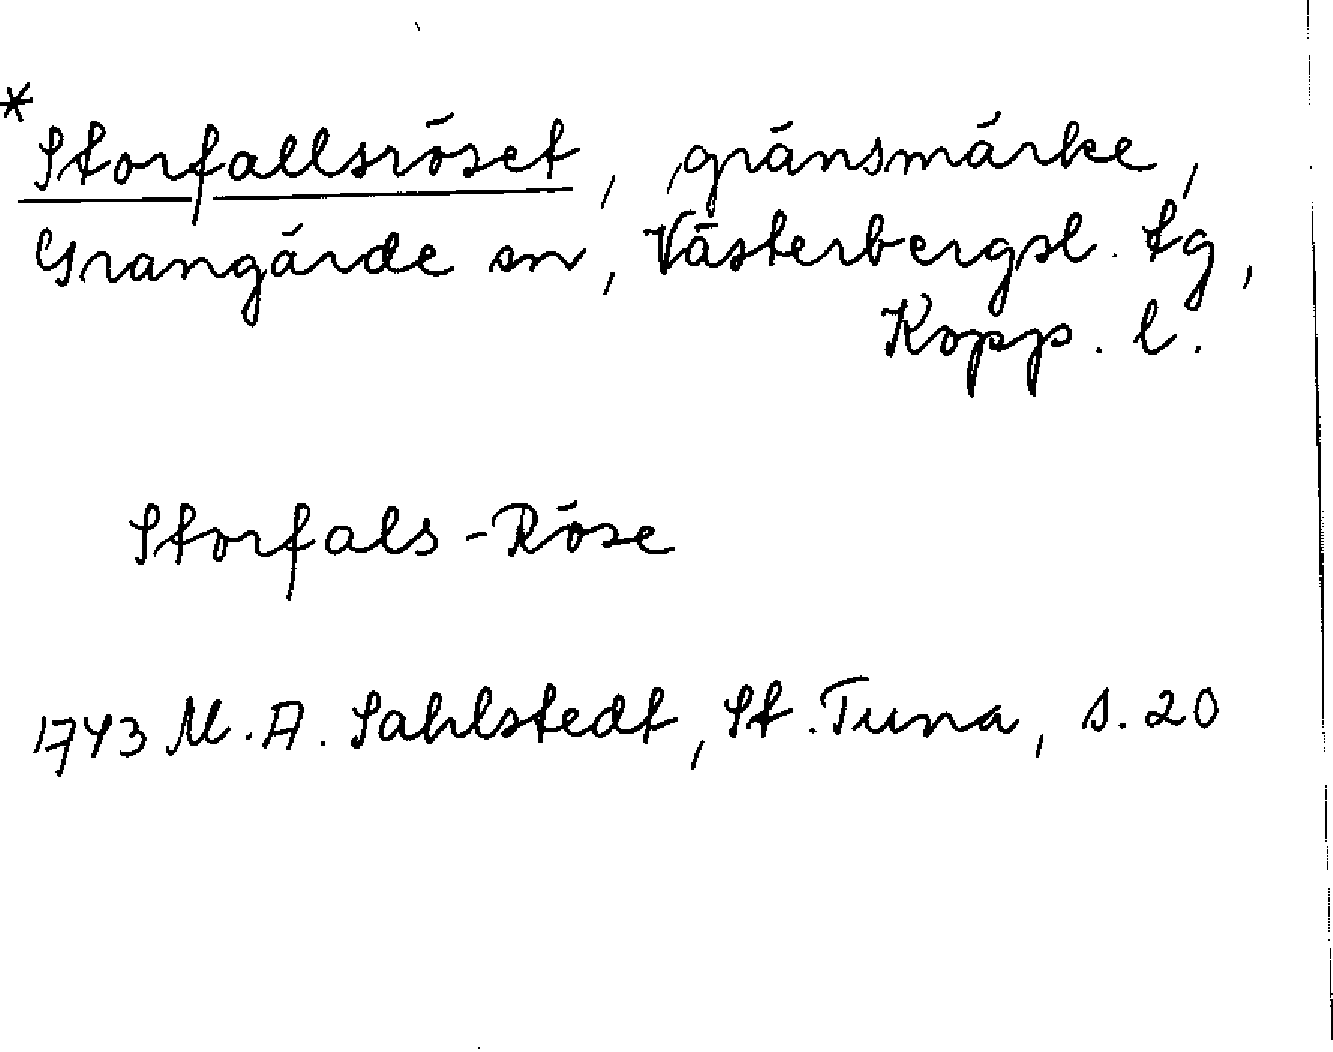 * Storfallsröset, gränsmärke,
Grangärde sn, Västerbergsl. tg,
Kopp. l.
Storfals-Röse
1743 M. A. Sahlstedt, St. Tuna, s. 20